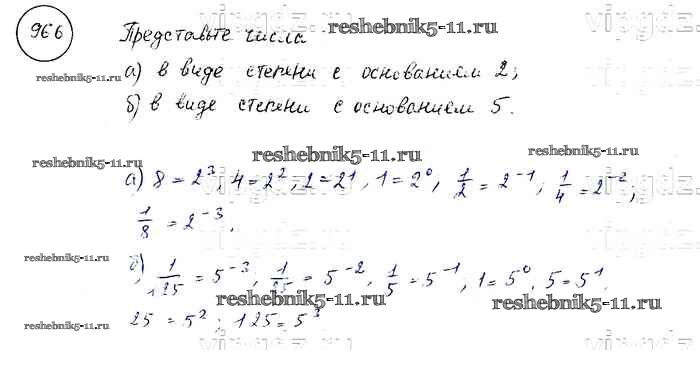 966 Представьте числа
а) в виде степени с основанием 2;
б) в виде степени с основанием 5.
а) 8 = 2³, 4 = 2², 2 = 2¹, 1 = 2⁰, 1/2 = 2⁻¹, 1/4 = 2⁻²,
1/8 = 2⁻³.
б) 1/125 = 5⁻³, 1/25 = 5⁻², 1/5 = 5⁻¹, 1 = 5⁰, 5 = 5¹,
25 = 5²; 125 = 5³
reshebnik5-11.ru
reshebnik5-11.ru
reshebnik5-11.ru
reshebnik5-11.ru
reshebnik5-11.ru
reshebnik5-11.ru
reshebnik5-11.ru
reshebnik5-11.ru
reshebnik5-11.ru
vipgdz.ru